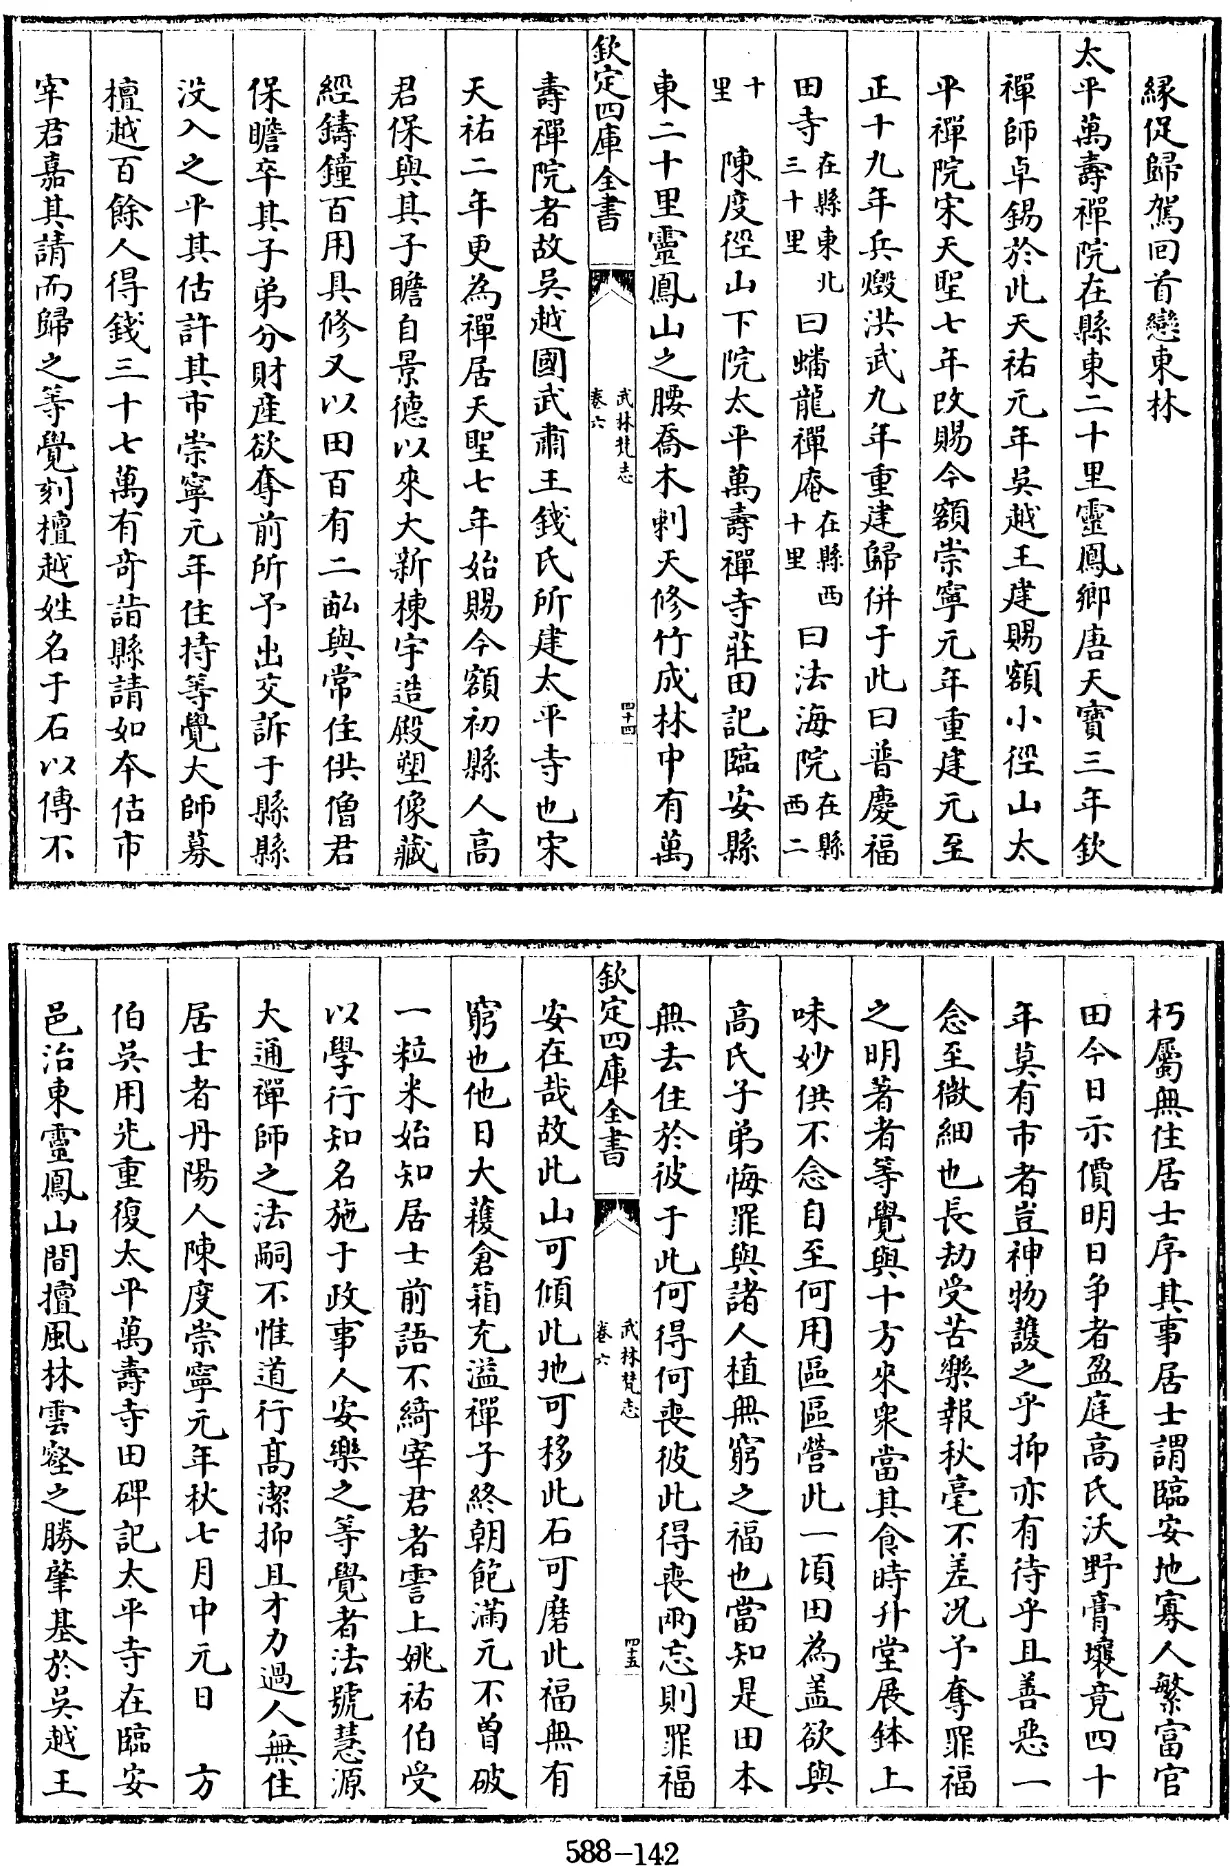 縁促歸駕回首戀東林
太平萬壽禪院在縣東二十里靈鳳鄉唐天寶三年欽
禪師卓錫於此天祐元年吳越王建賜額小徑山太
平禪院宋天聖七年改賜今額崇寧元年重建元至
正十九年兵燬洪武九年重建歸併于此曰普慶福
田寺在縣東北三十里曰蟠龍禪庵在縣西十里曰法海院在縣西二
十里 陳度徑山下院太平萬壽禪寺莊田記臨安縣
東二十里靈鳳山之腰喬木刺天修竹成林中有萬
欽定四庫全書
武林梵志
卷六
四十四
壽禪院者故吳越國武肅王錢氏所建太平寺也宋
天祐二年更為禪居天聖七年始賜今額初縣人高
君保與其子瞻自景德以來大新棟宇造殿塑像藏
經鑄鐘百用具修又以田百有二畆與常住供僧君
保瞻卒其子弟分財產欲奪前所予出交訴于縣縣
没入之平其估許其市崇寧元年住持等覺大師募
檀越百餘人得錢三十七萬有奇詣縣請如本估市
宰君嘉其請而歸之等覺刻檀越姓名于石以傳不
朽屬無住居士序其事居士謂臨安地寡人繁富官
田今日示價明日争者盈庭高氏沃野膏壤竟四十
年莫有市者豈神物護之乎抑亦有待乎且善惡一
念至微細也長劫受苦樂報秋毫不差况予奪罪福
之明著者等覺與十方來衆當其食時升堂展鉢上
味妙供不念自至何用區區營此一頃田為盖欲與
高氏子弟悔罪與諸人植無窮之福也當知是田本
無去住於彼于此何得何喪彼此得喪兩忘則罪福
欽定四庫全書
武林梵志
卷六
四十五
安在哉故此山可傾此地可移此石可磨此福無有
窮也他日大穫倉箱充溢禪子終朝飽滿元不曾破
一粒米始知居士前語不綺宰君者霅上姚祐伯受
以學行知名施于政事人安樂之等覺者法號慧源
大通禪師之法嗣不惟道行髙潔抑且才力過人無住
居士者丹陽人陳度崇寧元年秋七月中元日 方
伯吳用光重復太平萬壽寺田碑記太平寺在臨安
邑治東靈鳳山間擅風林雲壑之勝肇基於吳越王
588-142